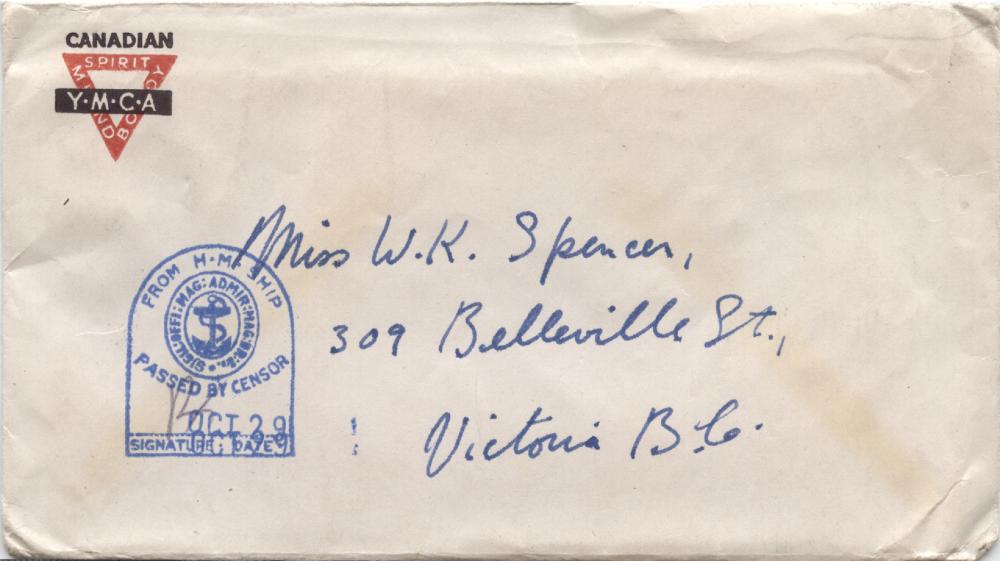 CANADIAN
SPIRIT
MIND
BODY
Y·M·C·A
Miss W.K. Spencer,
309 Belleville St.,
Victoria B.C.
FROM H·M· SHIP
SIGIL:OFFI:MAG:ADMIR:MAG:
PASSED BY CENSOR
OCT 29
SIGNATURE: DATE